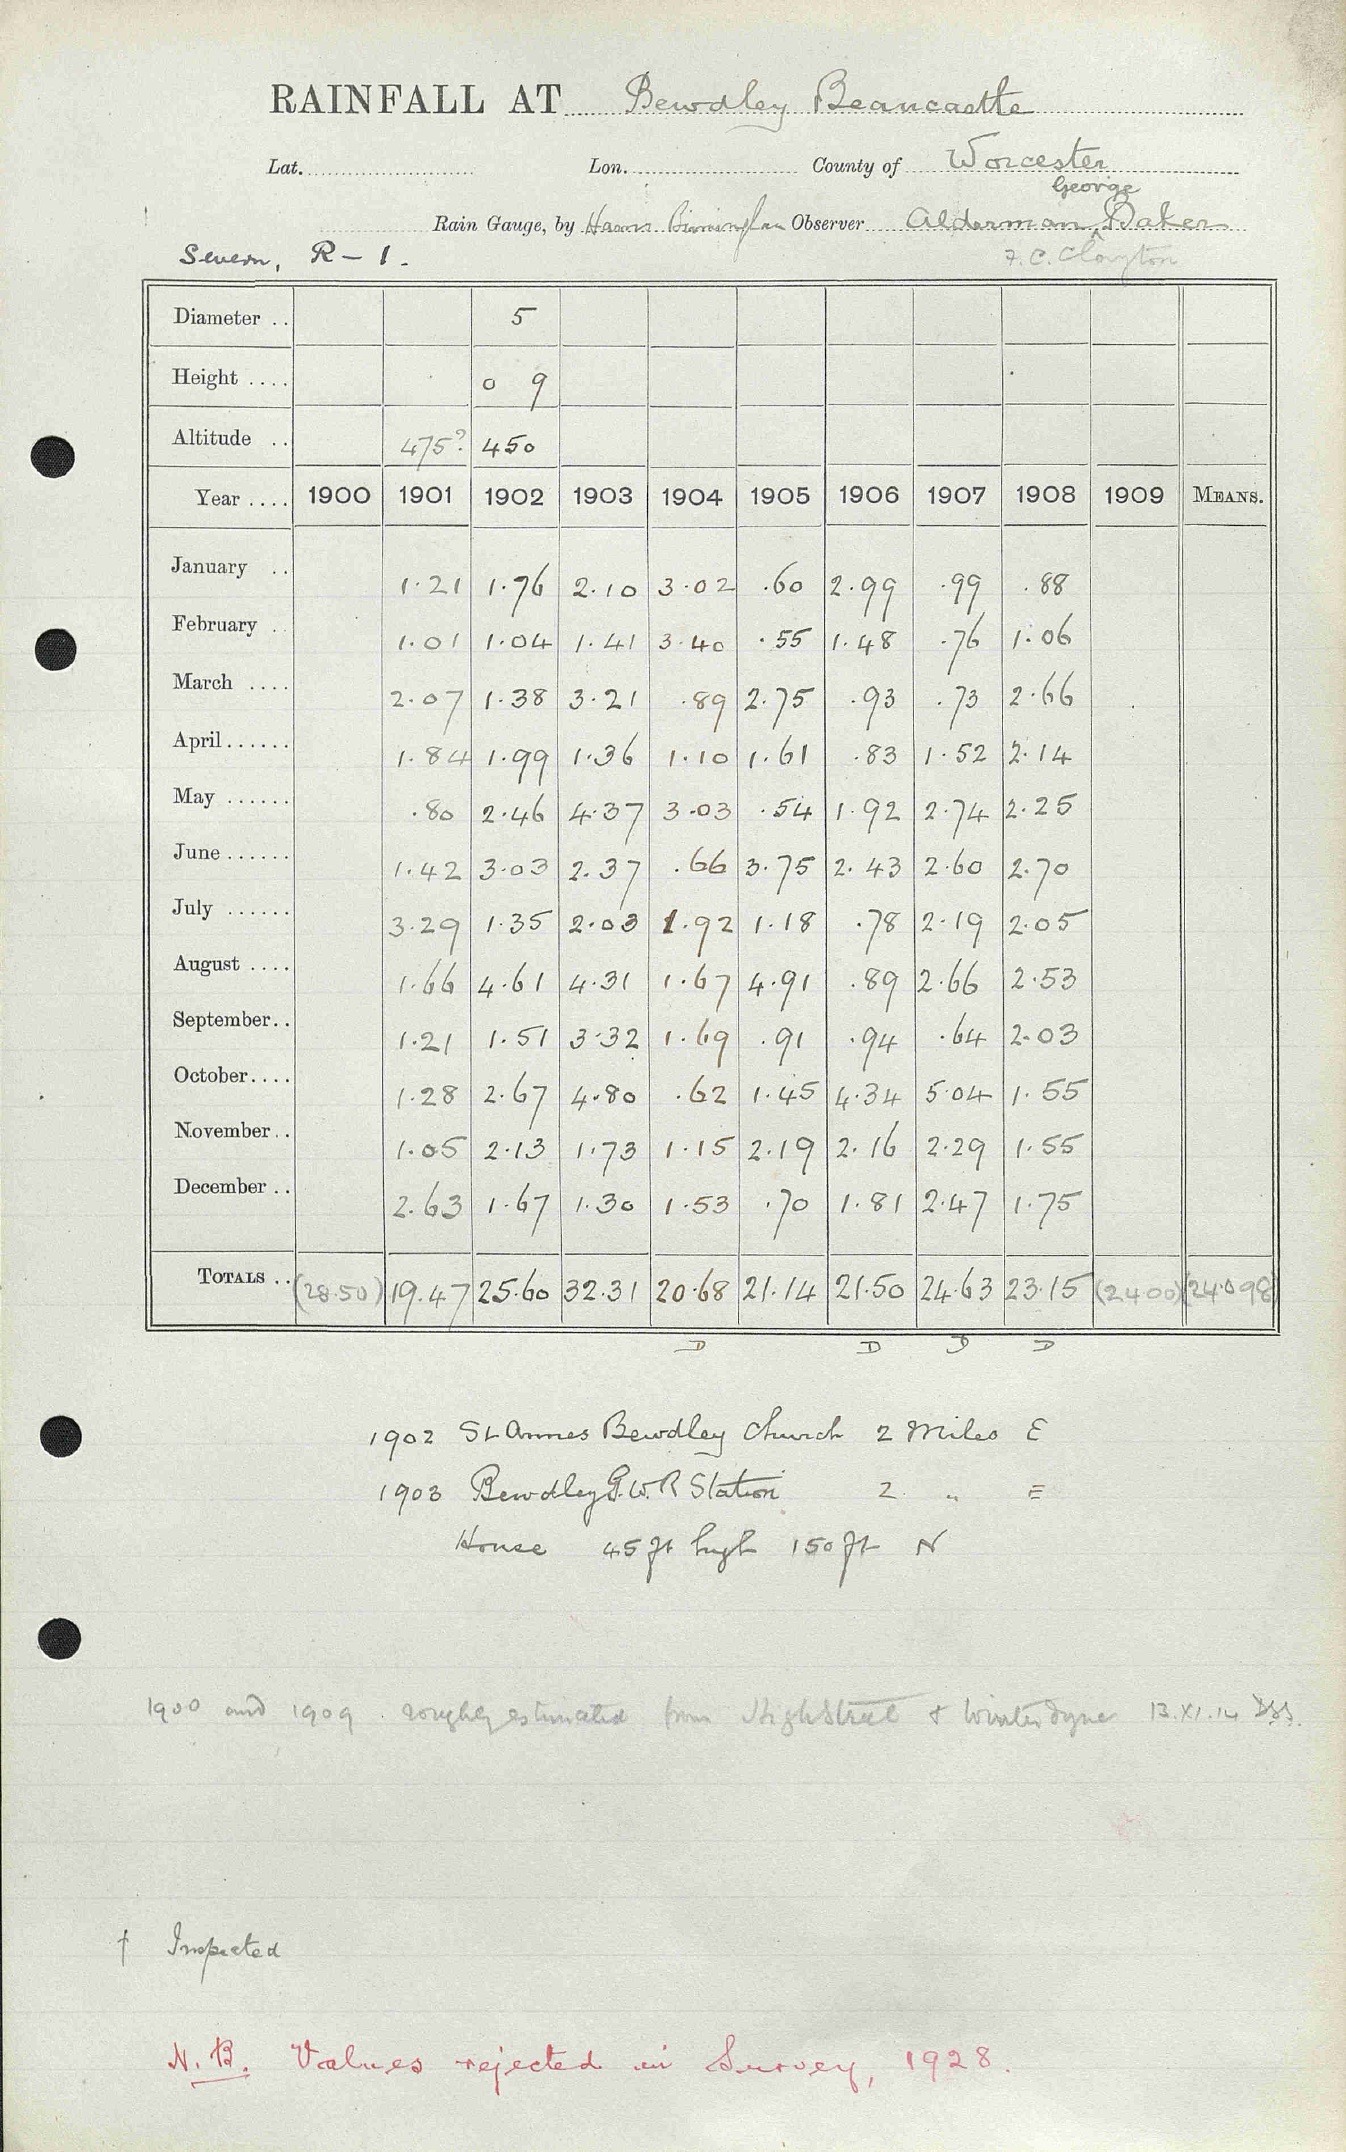 RAINFALL AT Bewdley Beancastle
Lat. Lon. County of Worcester
George
Rain Gauge, by Birmingham Observer Alderman ^ Baker
Severn, R - 1. F. C. Clayton
Diameter .. 5
Height .... 0 9
Altitude .. 475? 450
Year .... 1900 1901 1902 1903 1904 1905 1906 1907 1908 1909 MEANS.
January .. 1.21 1.76 2.10 3.02 .60 2.99 .99 .88
February .. 1.01 1.04 1.41 3.40 .55 1.48 .76 1.06
March .... 2.07 1.38 3.21 .89 2.75 .93 .73 2.66
April ...... 1.84 1.99 1.36 1.10 1.61 .83 1.52 2.14
May ...... .80 2.46 4.37 3.03 .54 1.92 2.74 2.25
June ...... 1.42 3.03 2.37 .66 3.75 2.43 2.60 2.70
July ...... 3.29 1.35 2.03 1.92 1.18 .78 2.19 2.05
August .... 1.66 4.61 4.31 1.67 4.91 .89 2.66 2.53
September.. 1.21 1.51 3.32 1.69 .91 .94 .64 2.03
October.... 1.28 2.67 4.80 .62 1.45 4.34 5.04 1.55
November.. 1.05 2.13 1.73 1.15 2.19 2.16 2.29 1.55
December .. 2.63 1.67 1.30 1.53 .70 1.81 2.47 1.75
TOTALS .. (28.50) 19.47 25.60 32.31 20.68 21.14 21.50 24.63 23.15 (24.00) (24.098)
D D D D
1902 St Annes Bewdley Church 2 Miles E
1903 Bewdley G.W.R Station 2 " E
House 45 ft high 150 ft N
1900 and 1909 roughly estimated from High Street & Winterdyne 13.XI.14
† Inspected
N.B. Values rejected in Survey, 1928.